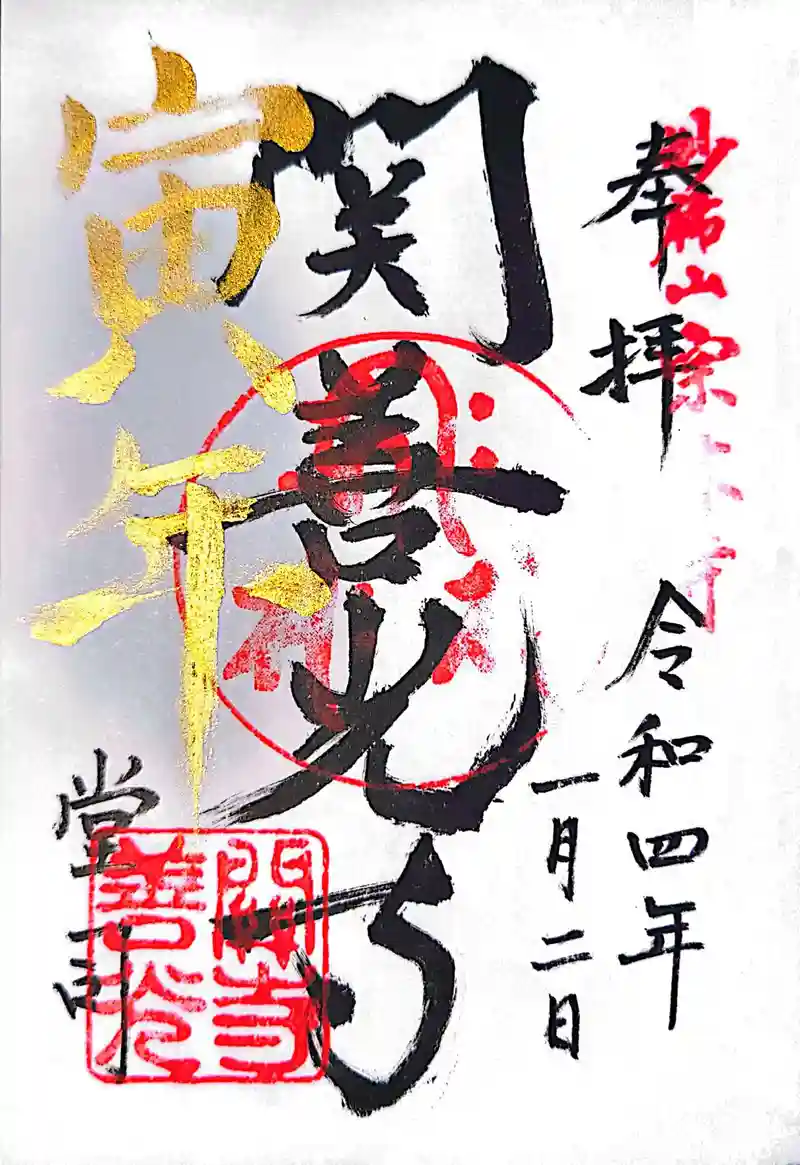 奉拝
妙祐山宗
令和四年
一月二日
関善光寺
寅年
堂司
關寺
善光